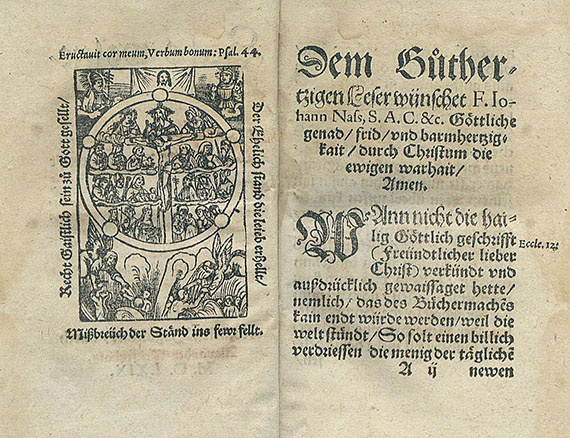 Eructauit cor meum, Verbum bonum: Psal. 44.
Recht Gaistlich sein zů Gott gesellt/
Der Ehelich stand die leieb erhellt/
Mißbreüch der Ständ ins fewr fellt.
Dem Gůther-
tzigen Leser wünschet F. Io-
hann Nass, S. A. C. &c. Göttliche
genad/ frid/ vnd barmhertzig-
kait/ durch Christum die
ewigen warhait/
Amen.
WAnn nicht die hai-
lig Göttlich geschrifft
Freündtlicher lieber
Christ/ verkündt vnd
außdrücklich geweissager hette/
nemlich/ das des Büchermachẽs
kain endt würde werden/ weil die
welt stündt/ So solt einen billich
verdriessen die menig der täglichẽ
A ij newen
Eccle. 12.